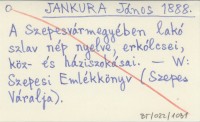 JANKURA János 1888.
A Szepesvármegyében lakó
szláv nép nyelve, erkölcsei,
köz- és háziszokásai. — W:
Szepesi Emlékkönyv (Szepes
Váralja).